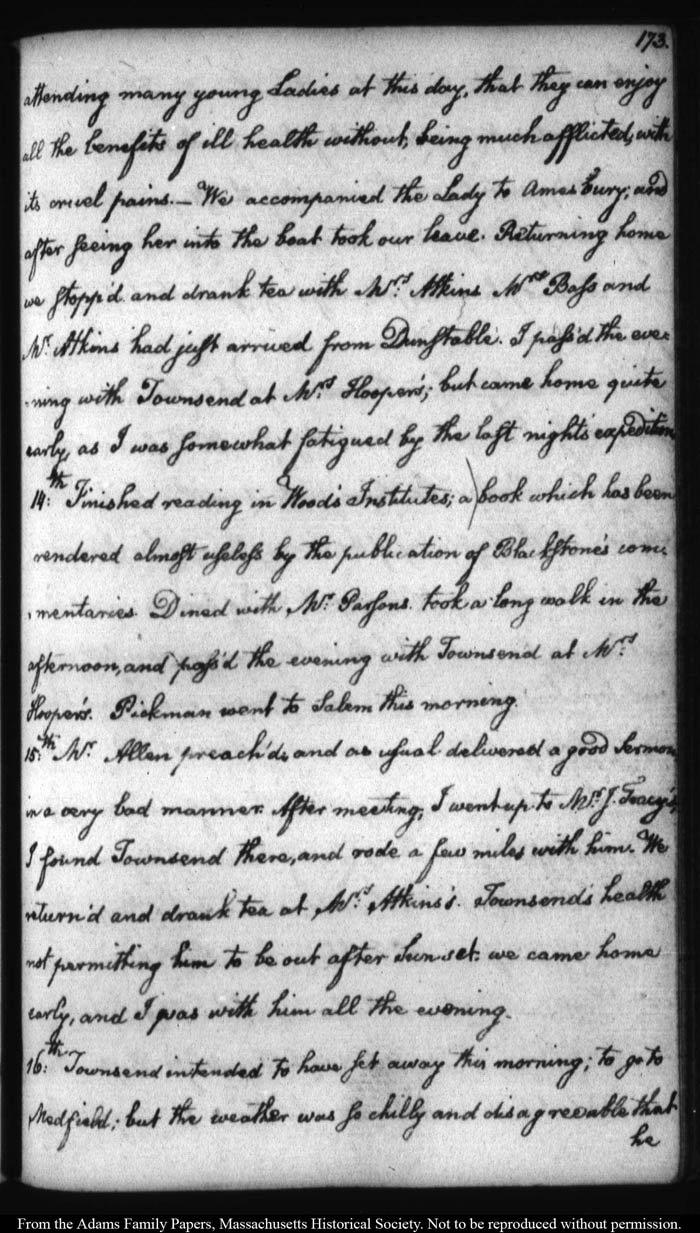 173.
attending many young Ladies at this day, that they can enjoy
all the benefits of ill health without, being much afflicted, with
its cruel pains.— We accompanied the Lady to Amesbury; and
after seeing her into the boat took our leave. Returning home
we stopp'd and drank tea with Mrs. Atkins Mrs. Bass and
Mr. Atkins had just arrived from Dunstable. I pass'd the eve-
ning with Townsend at Mrs. Hooper's; but came home quite
early, as I was somewhat fatigued by the last night's expedition
14:th Finished reading in Wood's Institutes; a book which has been
rendered almost useless by the publication of Blackstone's com-
mentaries. Dined with Mr. Parsons. took a long walk in the
afternoon, and pass'd the evening with Townsend at Mrs.
Hooper's. Pickman went to Salem this morning.
15:th Mr. Allen preach'd, and as usual delivered a good Sermon
in a very bad manner. After meeting, I went up to Mr. J. Tracy's,
I found Townsend there, and rode a few miles with him. We
return'd and drank tea at Mrs. Atkins's. Townsend's health
not permitting him to be out after Sun-set. we came home
early, and I was with him all the evening.
16:th Townsend intended to have set away this morning; to go to
Medfield; but the weather was so chilly and disagreeable that
he
From the Adams Family Papers, Massachusetts Historical Society. Not to be reproduced without permission.